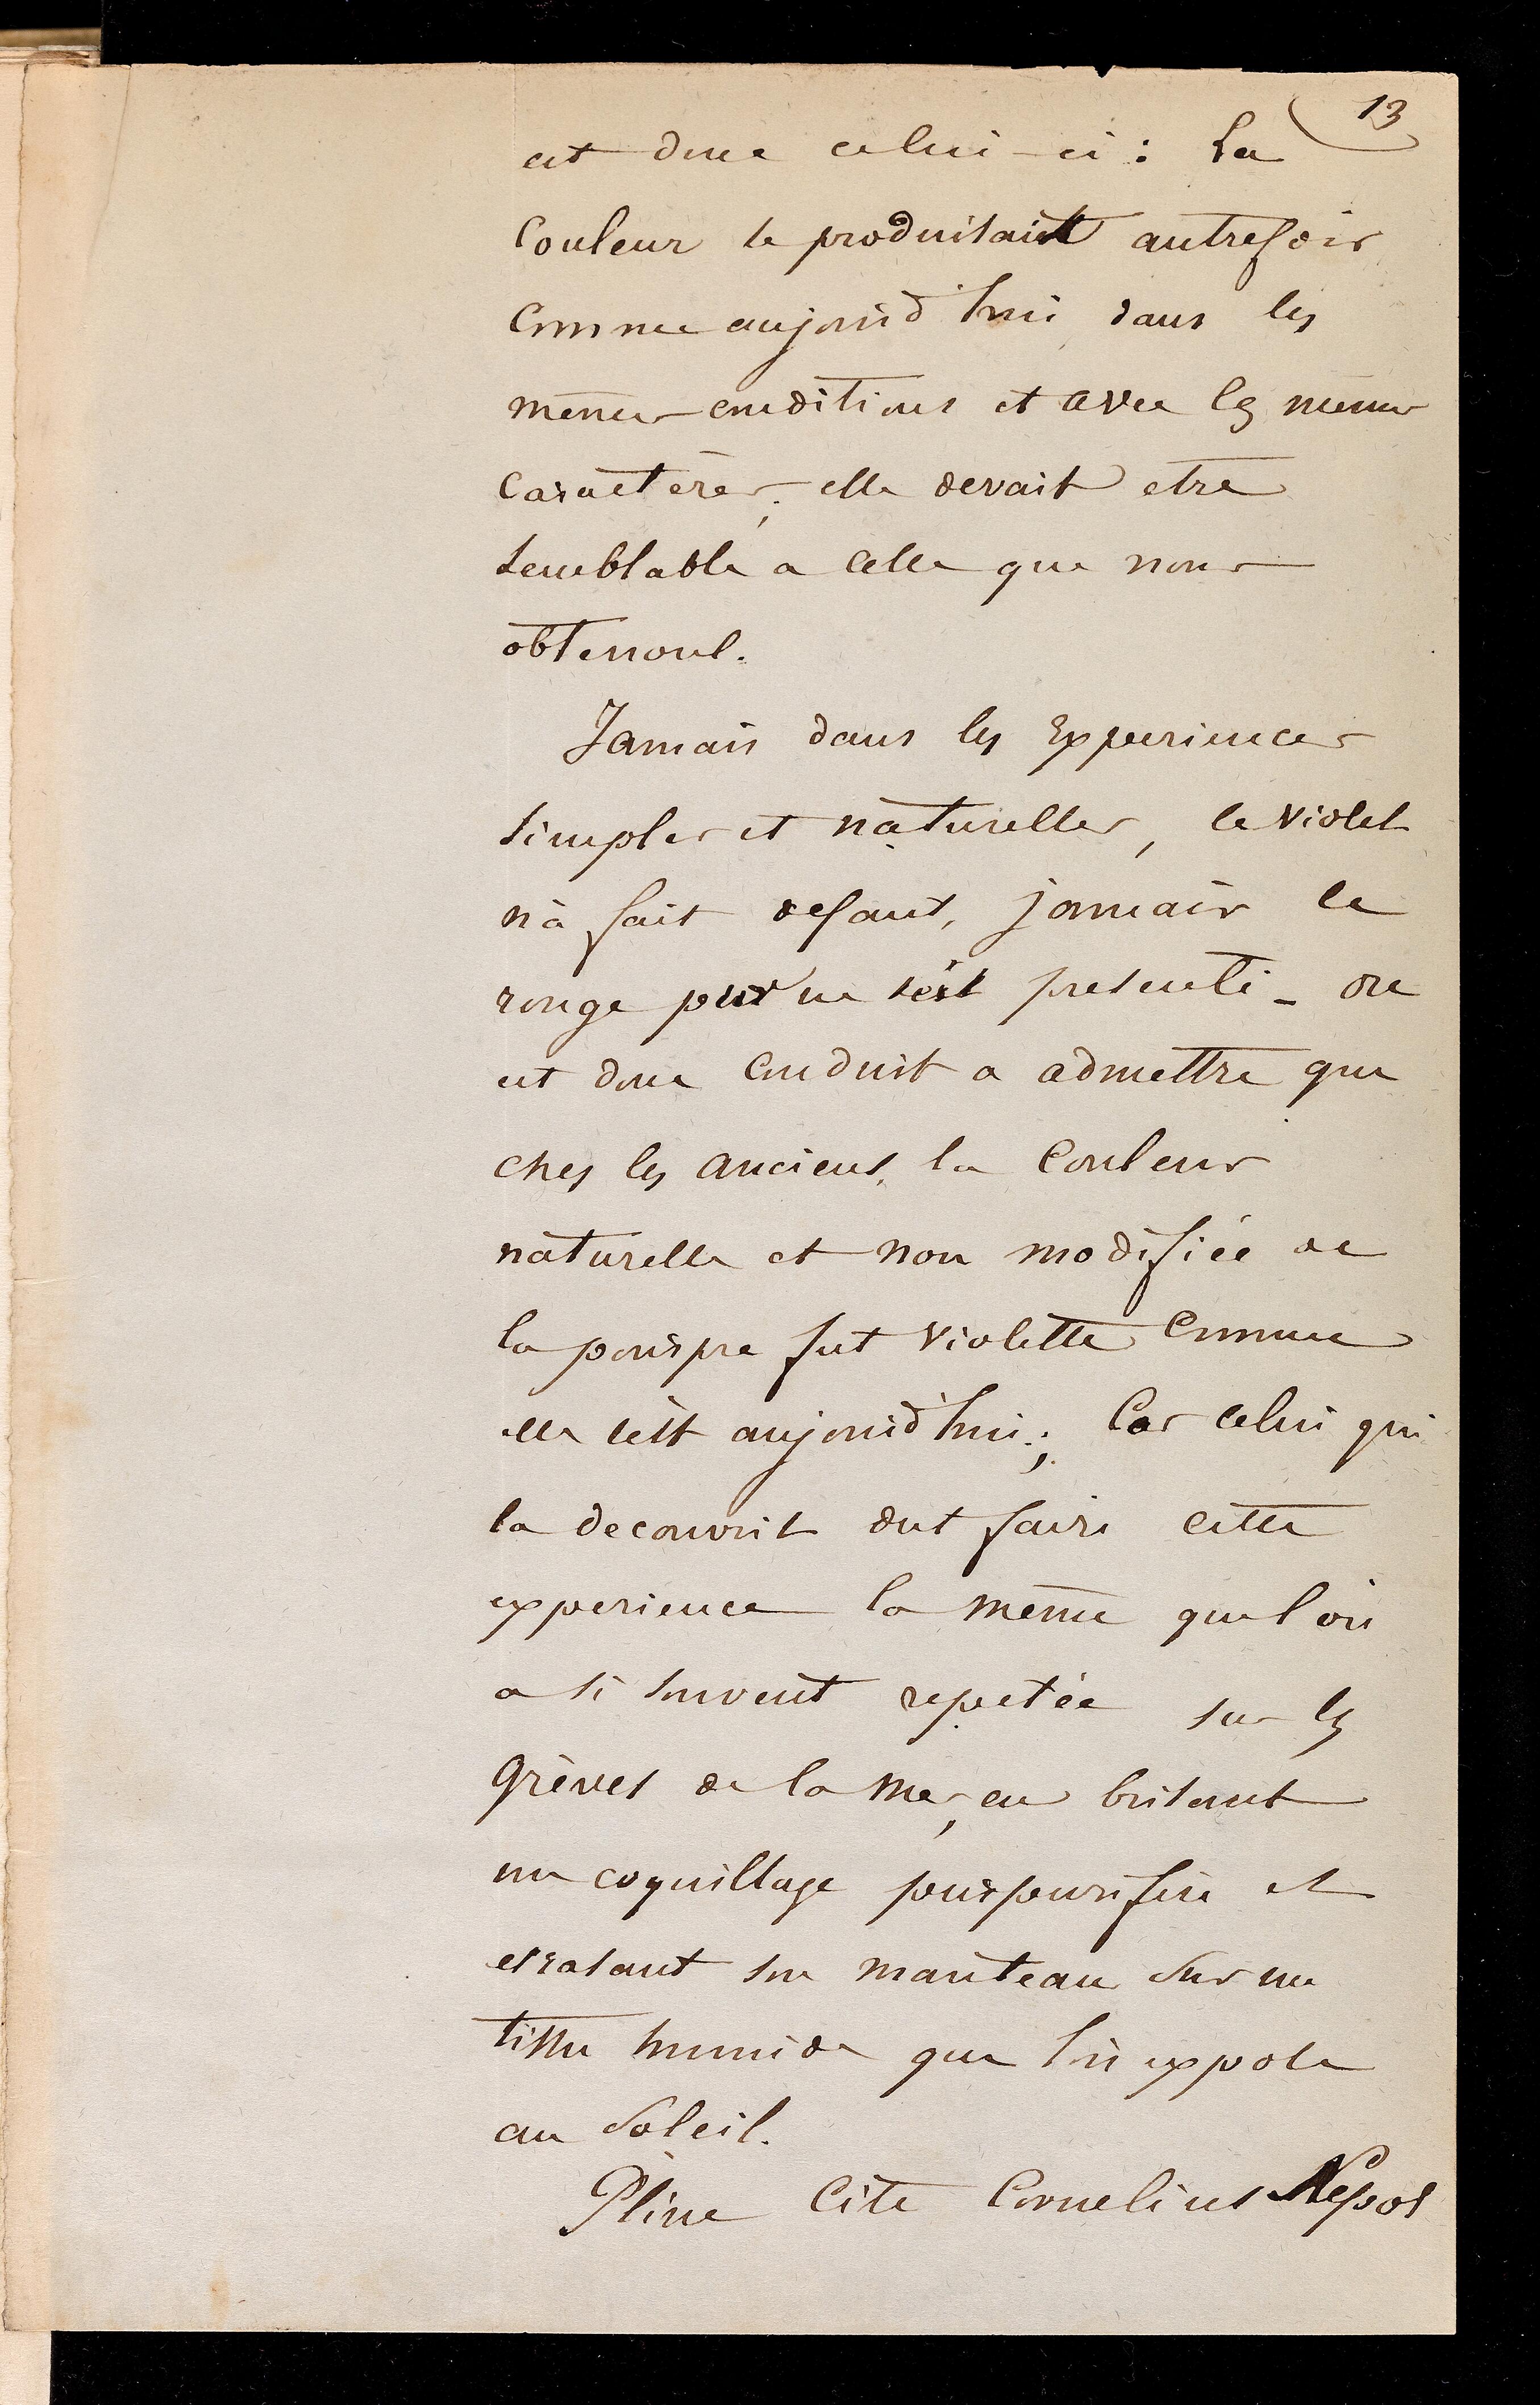 13
est donc celui-ci : La
Couleur se produisait autrefois
Comme aujourd'hui dans les
mêmes conditions et avec les mêmes
Caractères, elle devait etre
semblable a celle que nous
obtenons.
Jamais dans les Experiences
simples et naturelles, le violet
n'a fait defaut, jamais le
rouge pur ne s'est presenté _ on
est donc Conduit a admettre que
ches les anciens, la Couleur
naturelle et non modifiée de
la pourpre fut Violette Comme
elle l'est aujourd'hui; Car celui qui
la decouvrit dut faire cette
experience la même que l'on
a si souvent repetée sur les
Grèves de la Mer, en brisant
un coquillage pourpurifère et
ecrasant son manteau sur un
tissu humide que l'on expose
au Soleil.
Pline Cite Cornelius Nepos